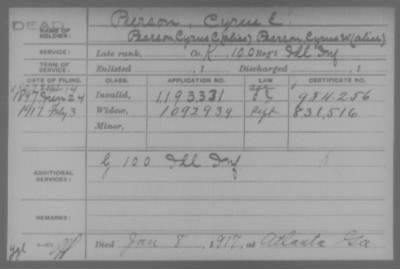 DEAD
NAME OF SOLDIER: Pierson, Cyrus C.
Pierson, Cyrus (alias) Pierson, Cyrus W (alias)
SERVICE: Late rank, Co. K, 100 Reg't Ill Inf
TERM OF SERVICE: Enlisted , 1 Discharged , 1
DATE OF FILING. CLASS. APPLICATION NO. LAW CERTIFICATE NO.
1897 24 Invalid, 1193331 984256
1917 Feby 3 Widow, 1092939 831516
Minor,
ADDITIONAL SERVICES: G 100 Ill Inf
REMARKS:
Died Jan 8, 1917, at Atlanta Ga